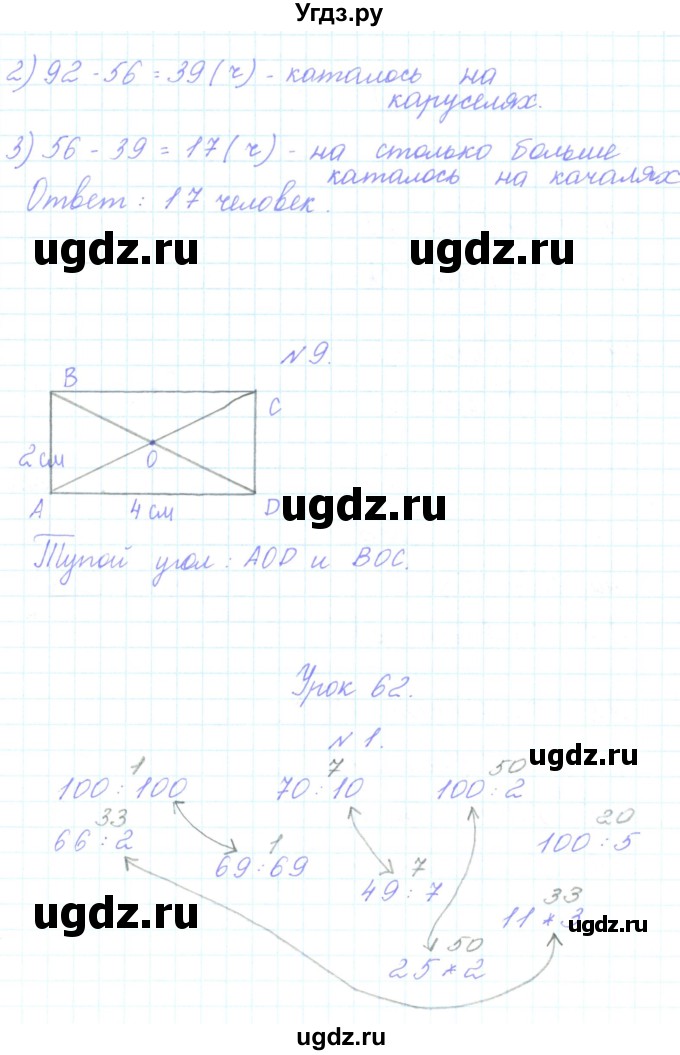 Угдз.ру
2) 92 - 56 = 39 (ч) - каталось на
каруселях.
3) 56 - 39 = 17 (ч) - на столько больше
каталось на качалях
Ответ: 17 человек.
ugdz.ru ugdz.ru
N 9.
B
C
2 см
O
A 4 см D
ugdz.ru
Тупой угол: AOD и BOC.
Урок 62.
N 1.
ugdz.ru
1 7 50
100 : 100 70 : 10 100 : 2
33 20
66 : 2 100 : 5
1
69 : 69
7
49 : 7
33
11 * 3
ugdz.ru ugdz.ru
50
25 * 2
ugdz.ru